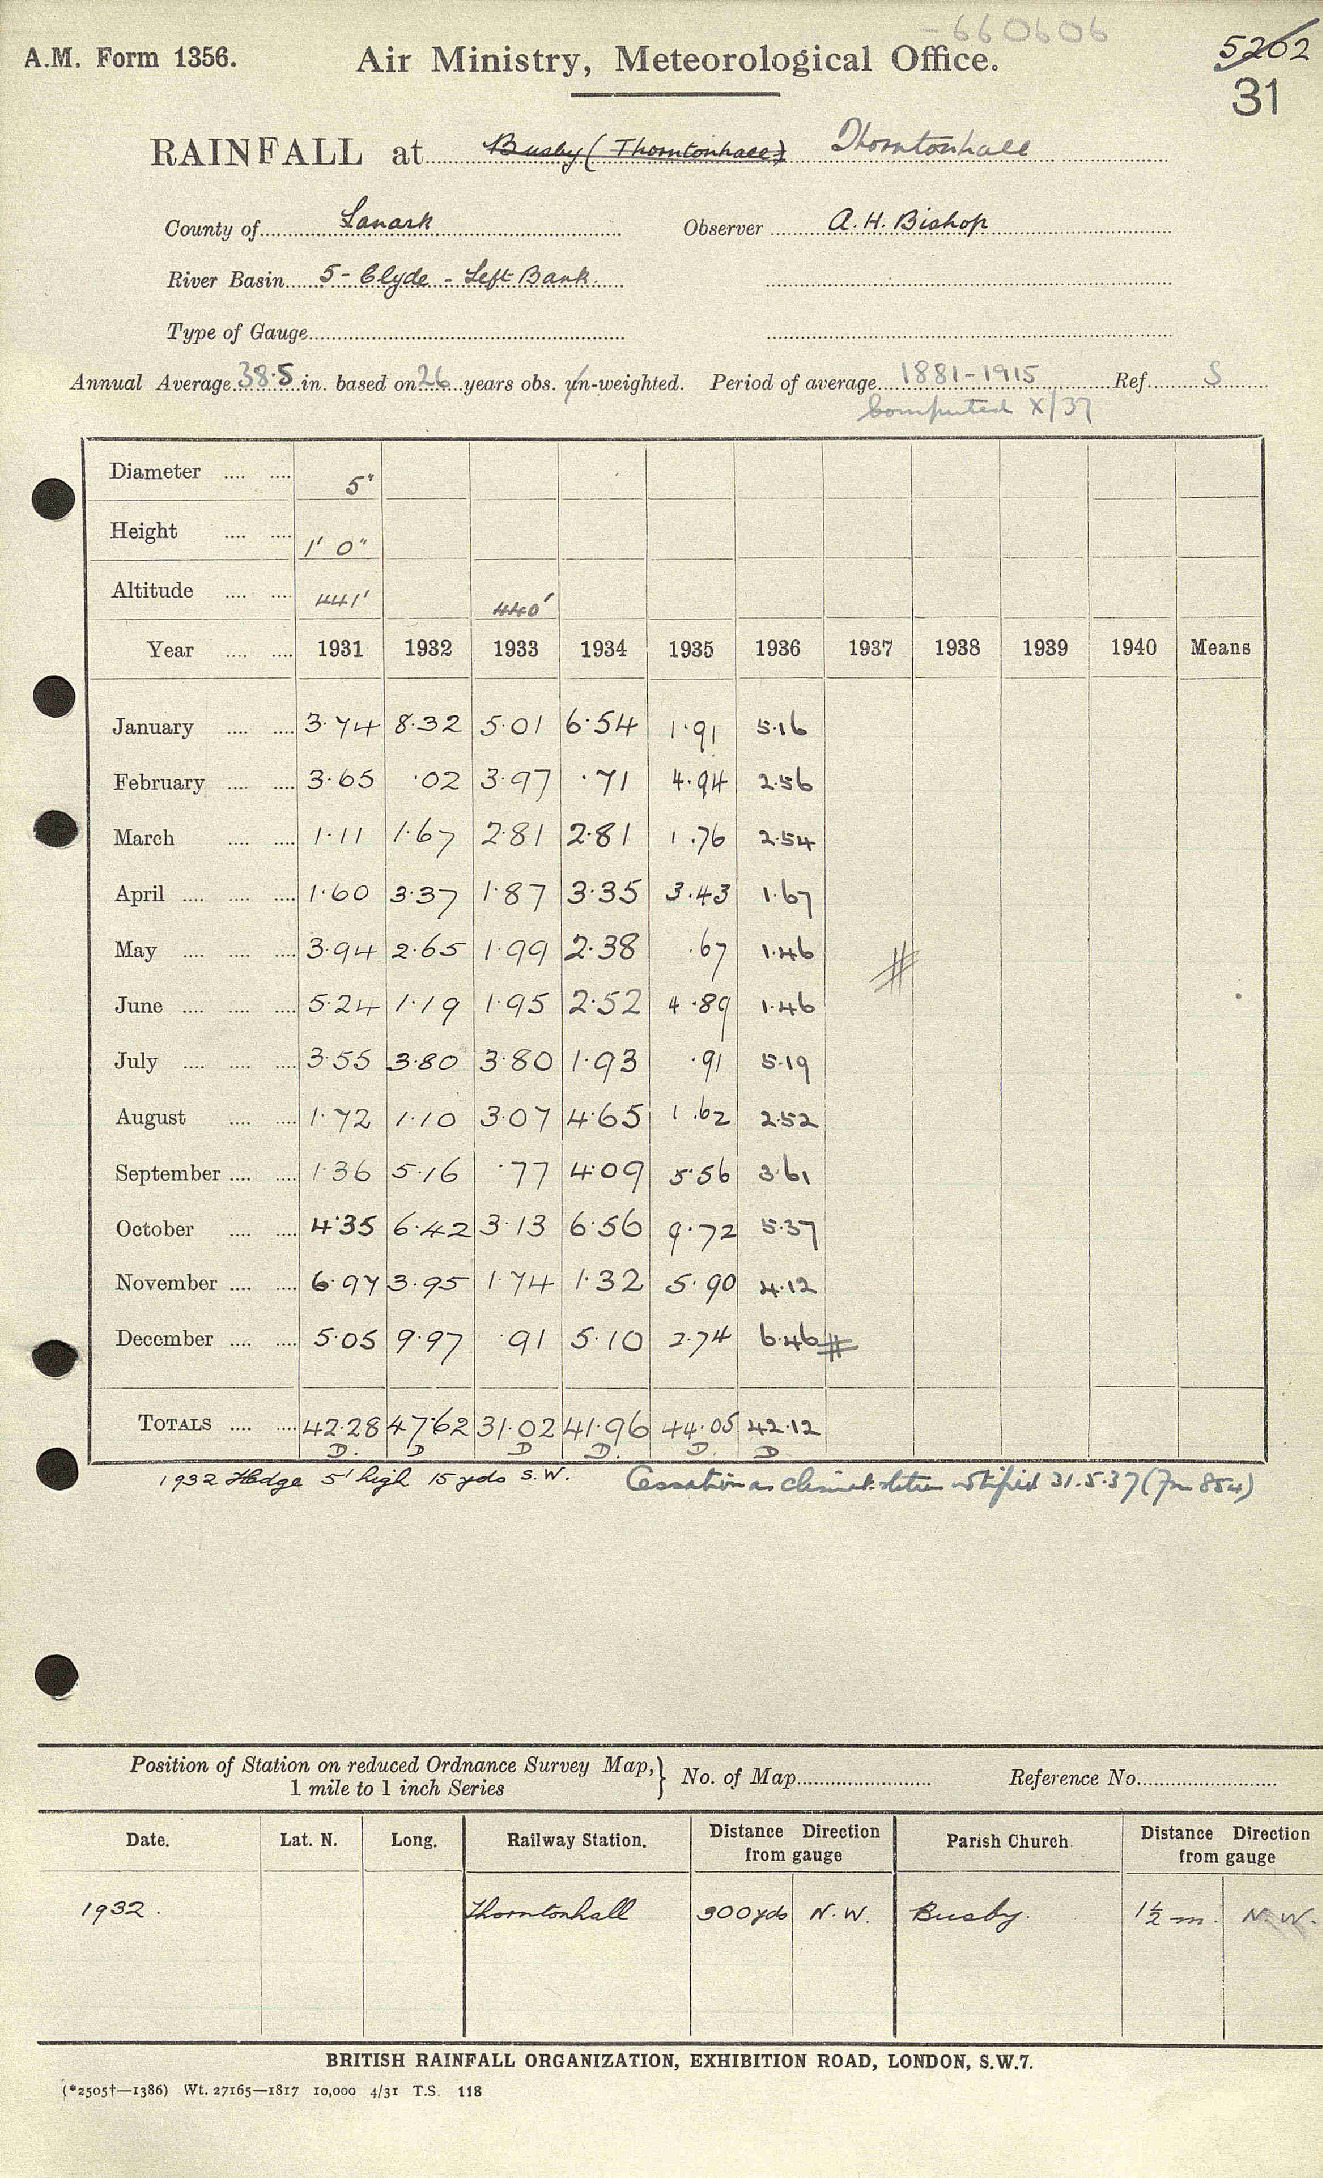 660606
A.M. Form 1356. Air Ministry, Meteorological Office. 5202
31
RAINFALL at Busby (Thorntonhall) Thorntonhall
County of Lanark Observer A. H. Bishop
River Basin 5 - Clyde - Left Bank.
Type of Gauge
Annual Average 38.5 in. based on 26 years obs. un-weighted. Period of average 1881-1915 Ref. S
Computed X/37
Diameter .... .... 5"
Height .... .... 1' 0"
Altitude .... .... 441' 440'
Year .... .... 1931 1932 1933 1934 1935 1936 1937 1938 1939 1940 Means
January .... .... 3.74 8.32 5.01 6.54 1.91 5.16
February .... .... 3.65 .02 3.97 .71 4.94 2.56
March .... .... 1.11 1.67 2.81 2.81 1.76 2.54
April .... .... .... 1.60 3.37 1.87 3.35 3.43 1.67
May .... .... .... 3.94 2.65 1.99 2.38 .67 1.46
June .... .... .... 5.24 1.19 1.95 2.52 4.89 1.46
July .... .... .... 3.55 3.80 3.80 1.93 .91 5.19
August .... .... 1.72 1.10 3.07 4.65 1.62 2.52
September .... .... 1.36 5.16 .77 4.09 5.56 3.61
October .... .... 4.35 6.42 3.13 6.56 9.72 5.37
November .... .... 6.97 3.95 1.74 1.32 5.90 4.12
December .... .... 5.05 9.97 .91 5.10 2.74 6.46
TOTALS .... .... 42.28 47.62 31.02 41.96 44.05 42.12
D. D D D. D. D
1932 Hedge 5' high 15 yds S.W. Cessation as climat. station notified 31.5.37 (7m 854)
Position of Station on reduced Ordnance Survey Map,} No. of Map Reference No.
1 mile to 1 inch Series
Date. Lat. N. Long. Railway Station. Distance Direction from gauge Parish Church. Distance Direction from gauge
1932. Thorntonhall 300 yds N.W. Busby. 1½ m. N.W.
BRITISH RAINFALL ORGANIZATION, EXHIBITION ROAD, LONDON, S.W.7.
(*2505†—1386) Wt. 27165—1817 10,000 4/31 T.S. 118